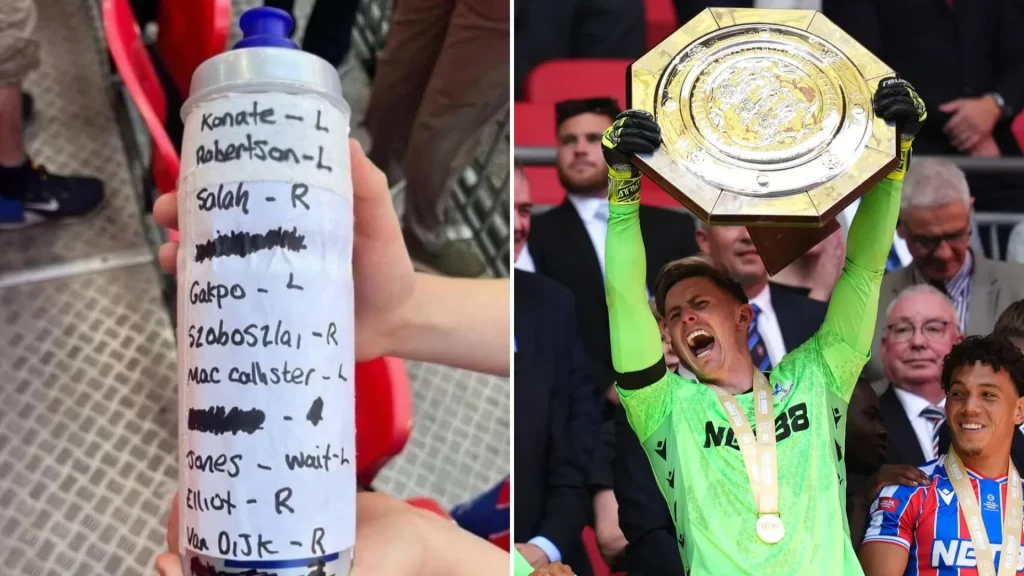 Konate - L
Robertson - L
Salah - R
Gakpo - L
Szoboszlai - R
Mac callister - L
Jones - wait - L
Elliot - R
Van Dijk - R
NET88
NET